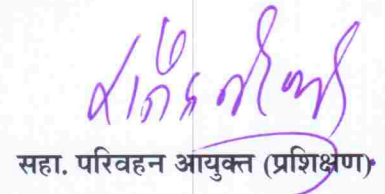 सहा. परिवहन आयुक्त (प्रशिक्षण)